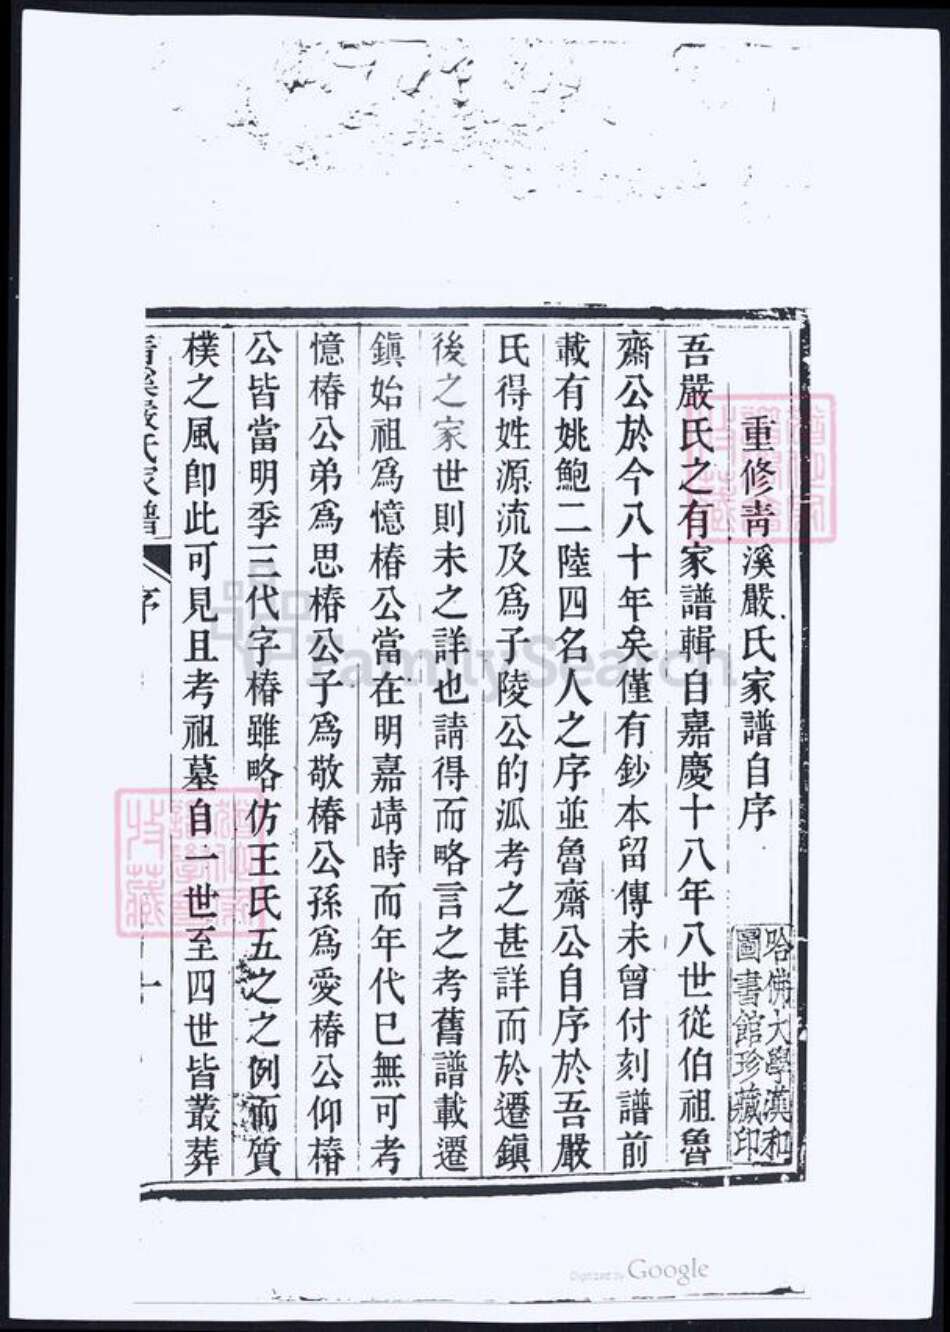 重修靑溪嚴氏家譜自序
哈佛大學漢和
圖書館珍藏印
吾嚴氏之有家譜輯自嘉慶十八年八世從伯祖魯
齋公於今八十年矣僅有鈔本留傳未曾付刻譜前
載有姚鮑二陸四名人之序並魯齋公自序於吾嚴
氏得姓源流及爲子陵公的泒考之甚詳而於遷鎭
後之家世則未之詳也請得而略言之考舊譜載遷
鎭始祖爲憶椿公當在明嘉靖時而年代巳無可考
憶椿公弟爲思椿公子爲敬椿公孫爲愛椿公仰椿
公皆當明季三代字椿雖略仿王氏五之之例而質
樸之風卽此可見且考祖墓自一世至四世皆叢葬
靑溪嚴氏家譜
序
一
FamilySearch
Digitized by Google